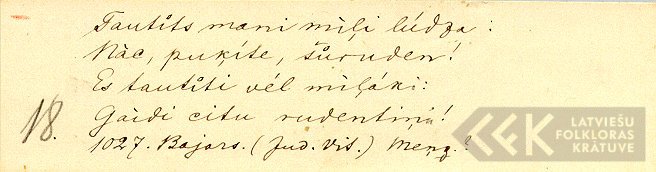 Tautīts mani mīļi lúdza:
Nàc, puķíte, šůruden!
Es tautīti vél míļáki:
Gàidi citu rudentiņu!
18.
1027. Bajars. (Jud. Vis.)
LATVIEŠU
FOLKLORAS
KRĀTUVE